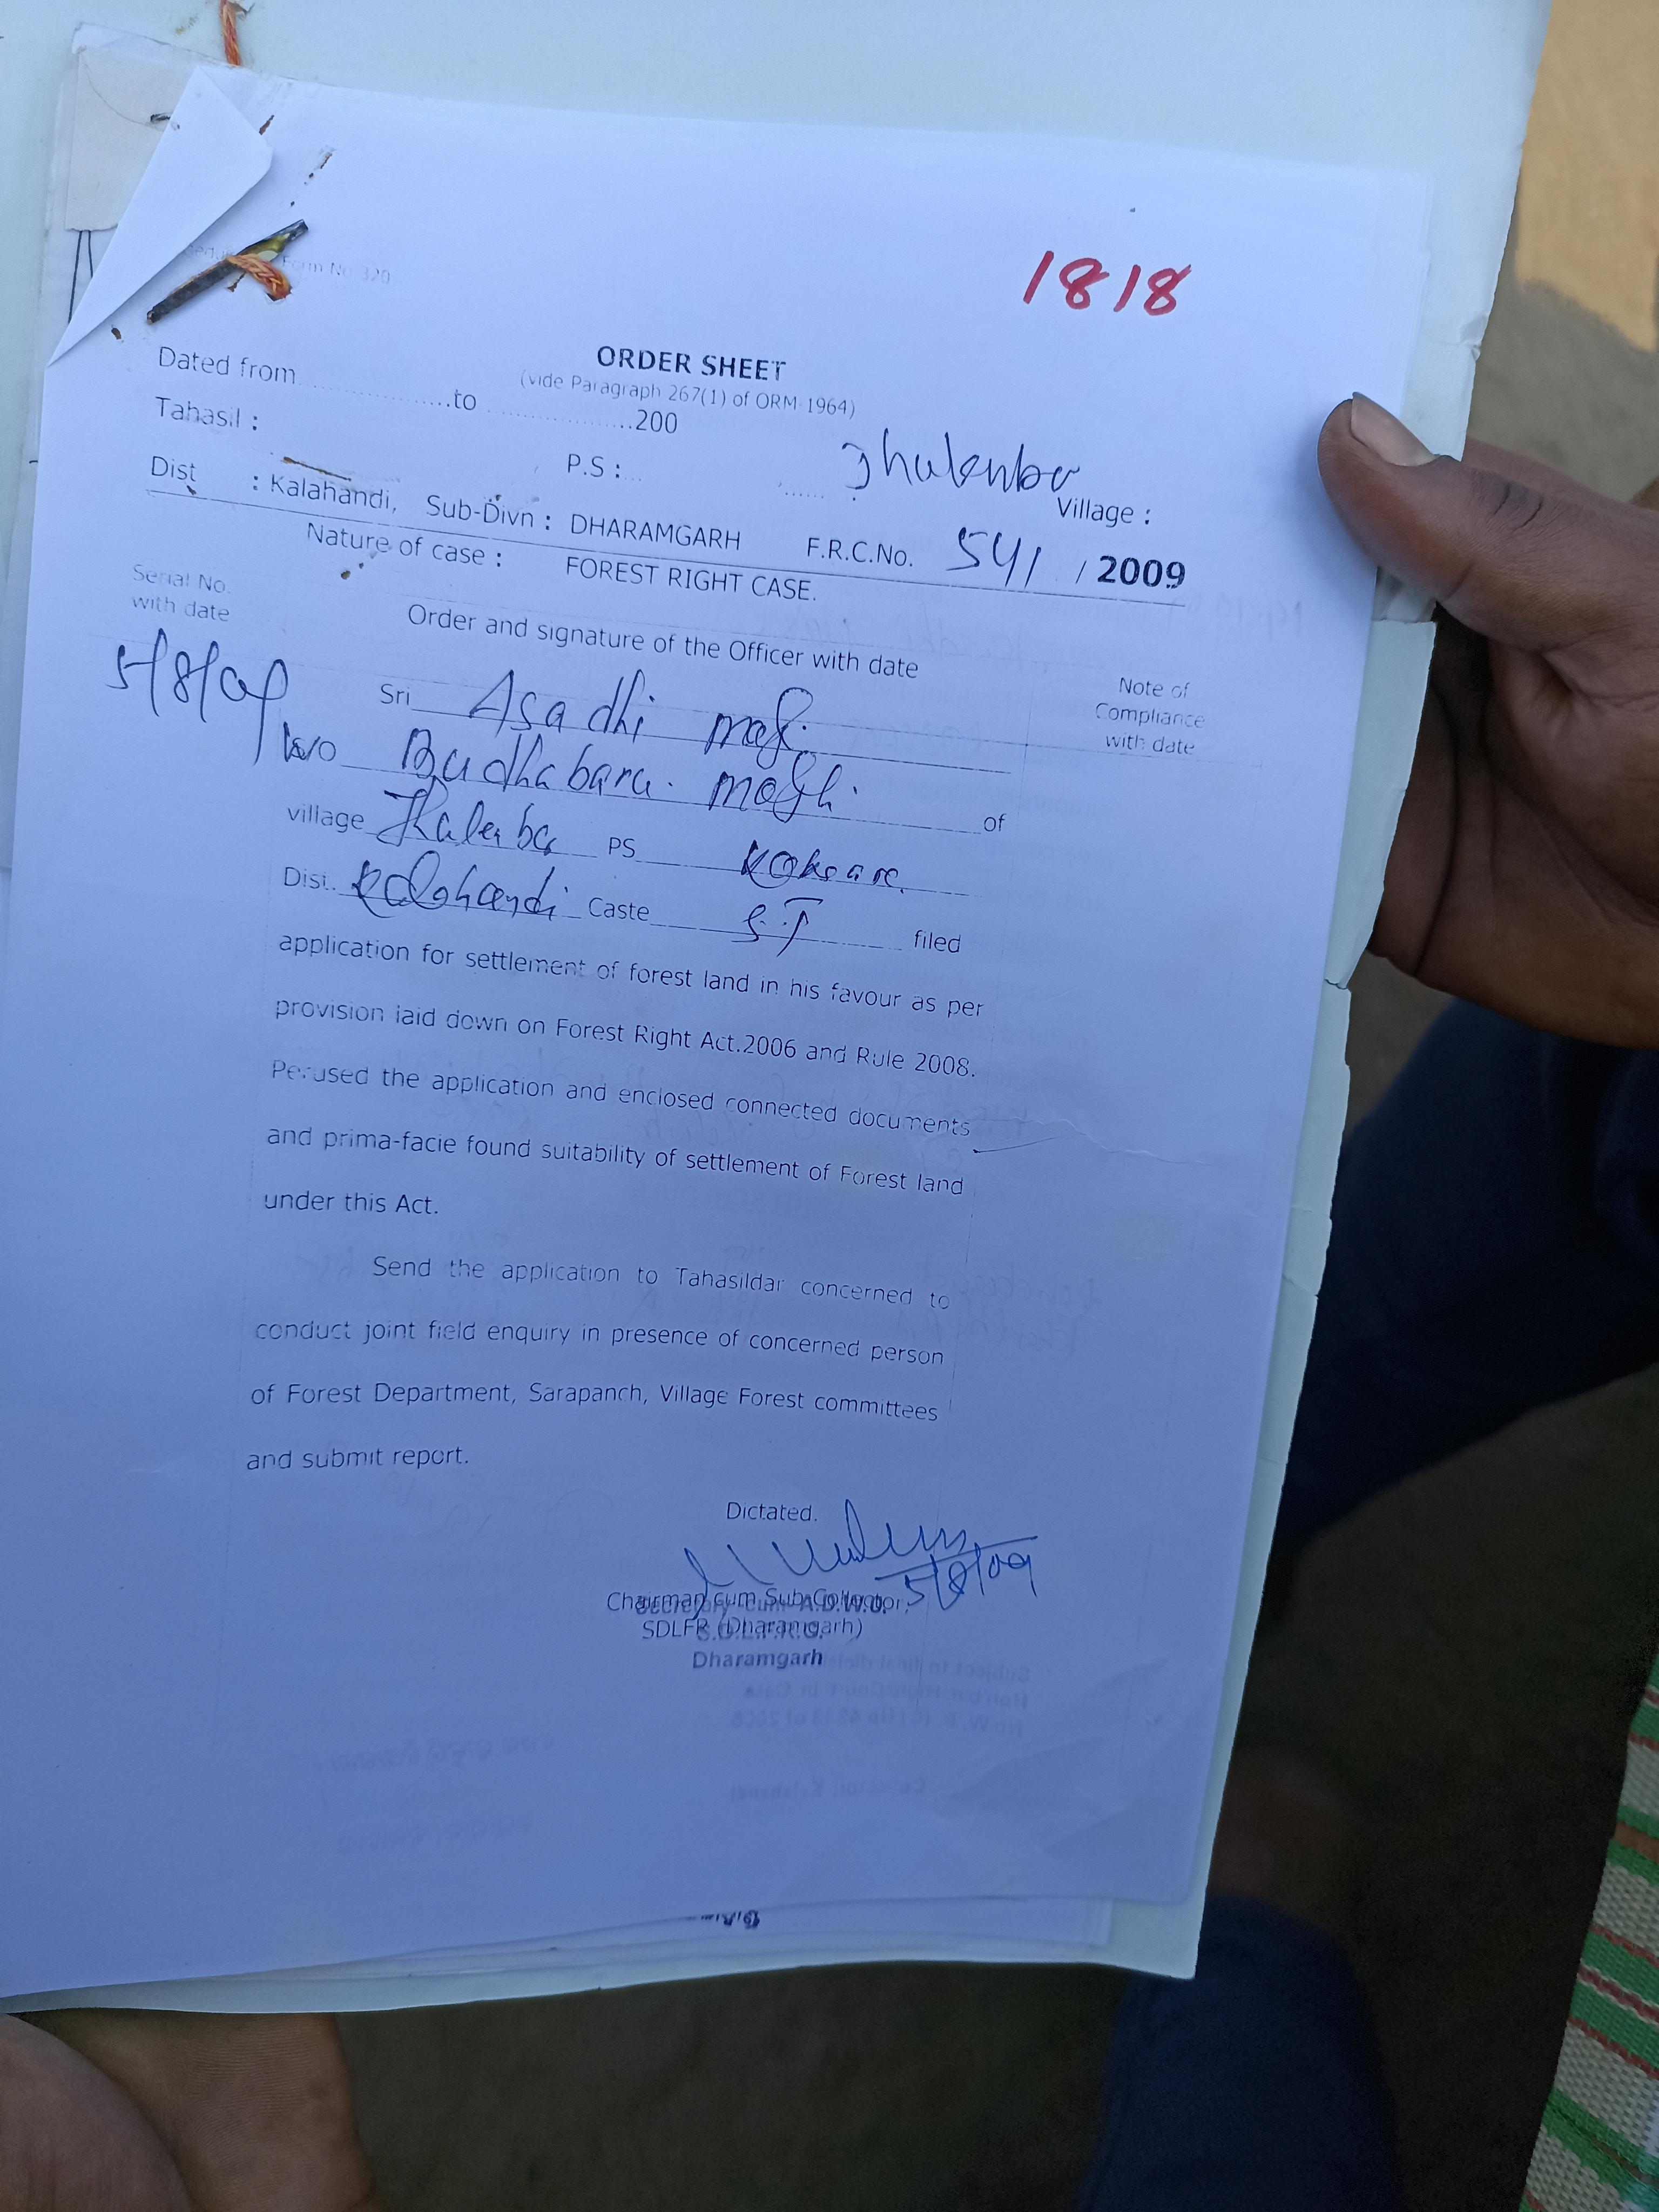 Form No 320
1818
ORDER SHEET
(vide Paragraph 267(1) of ORM-1964)
Dated from....................to ....................200
Tahasil :
P.S :...
Jhulenbar
Village :
Dist : Kalahandi, Sub-Divn : DHARAMGARH F.R.C.No. 541 / 2009
Nature of case : FOREST RIGHT CASE.
Serial No.
with date
Order and signature of the Officer with date
Note of
Compliance
with date
5/8/09
Sri Asadhi majhi
W/o Budhabaru majhi of
village PS Koksara
Dist. Kalahandi Caste S.T filed
application for settlement of forest land in his favour as per
provision laid down on Forest Right Act.2006 and Rule 2008.
Perused the application and enclosed connected documents
and prima-facie found suitability of settlement of Forest land
under this Act.
Send the application to Tahasildar concerned to
conduct joint field enquiry in presence of concerned person
of Forest Department, Sarapanch, Village Forest committees
and submit report.
Dictated.
5/8/09
Chairman cum Sub-Collector,
Secretary-Cum-A.D.W.O.
SDLFR (Dharamgarh)
Dharamgarh